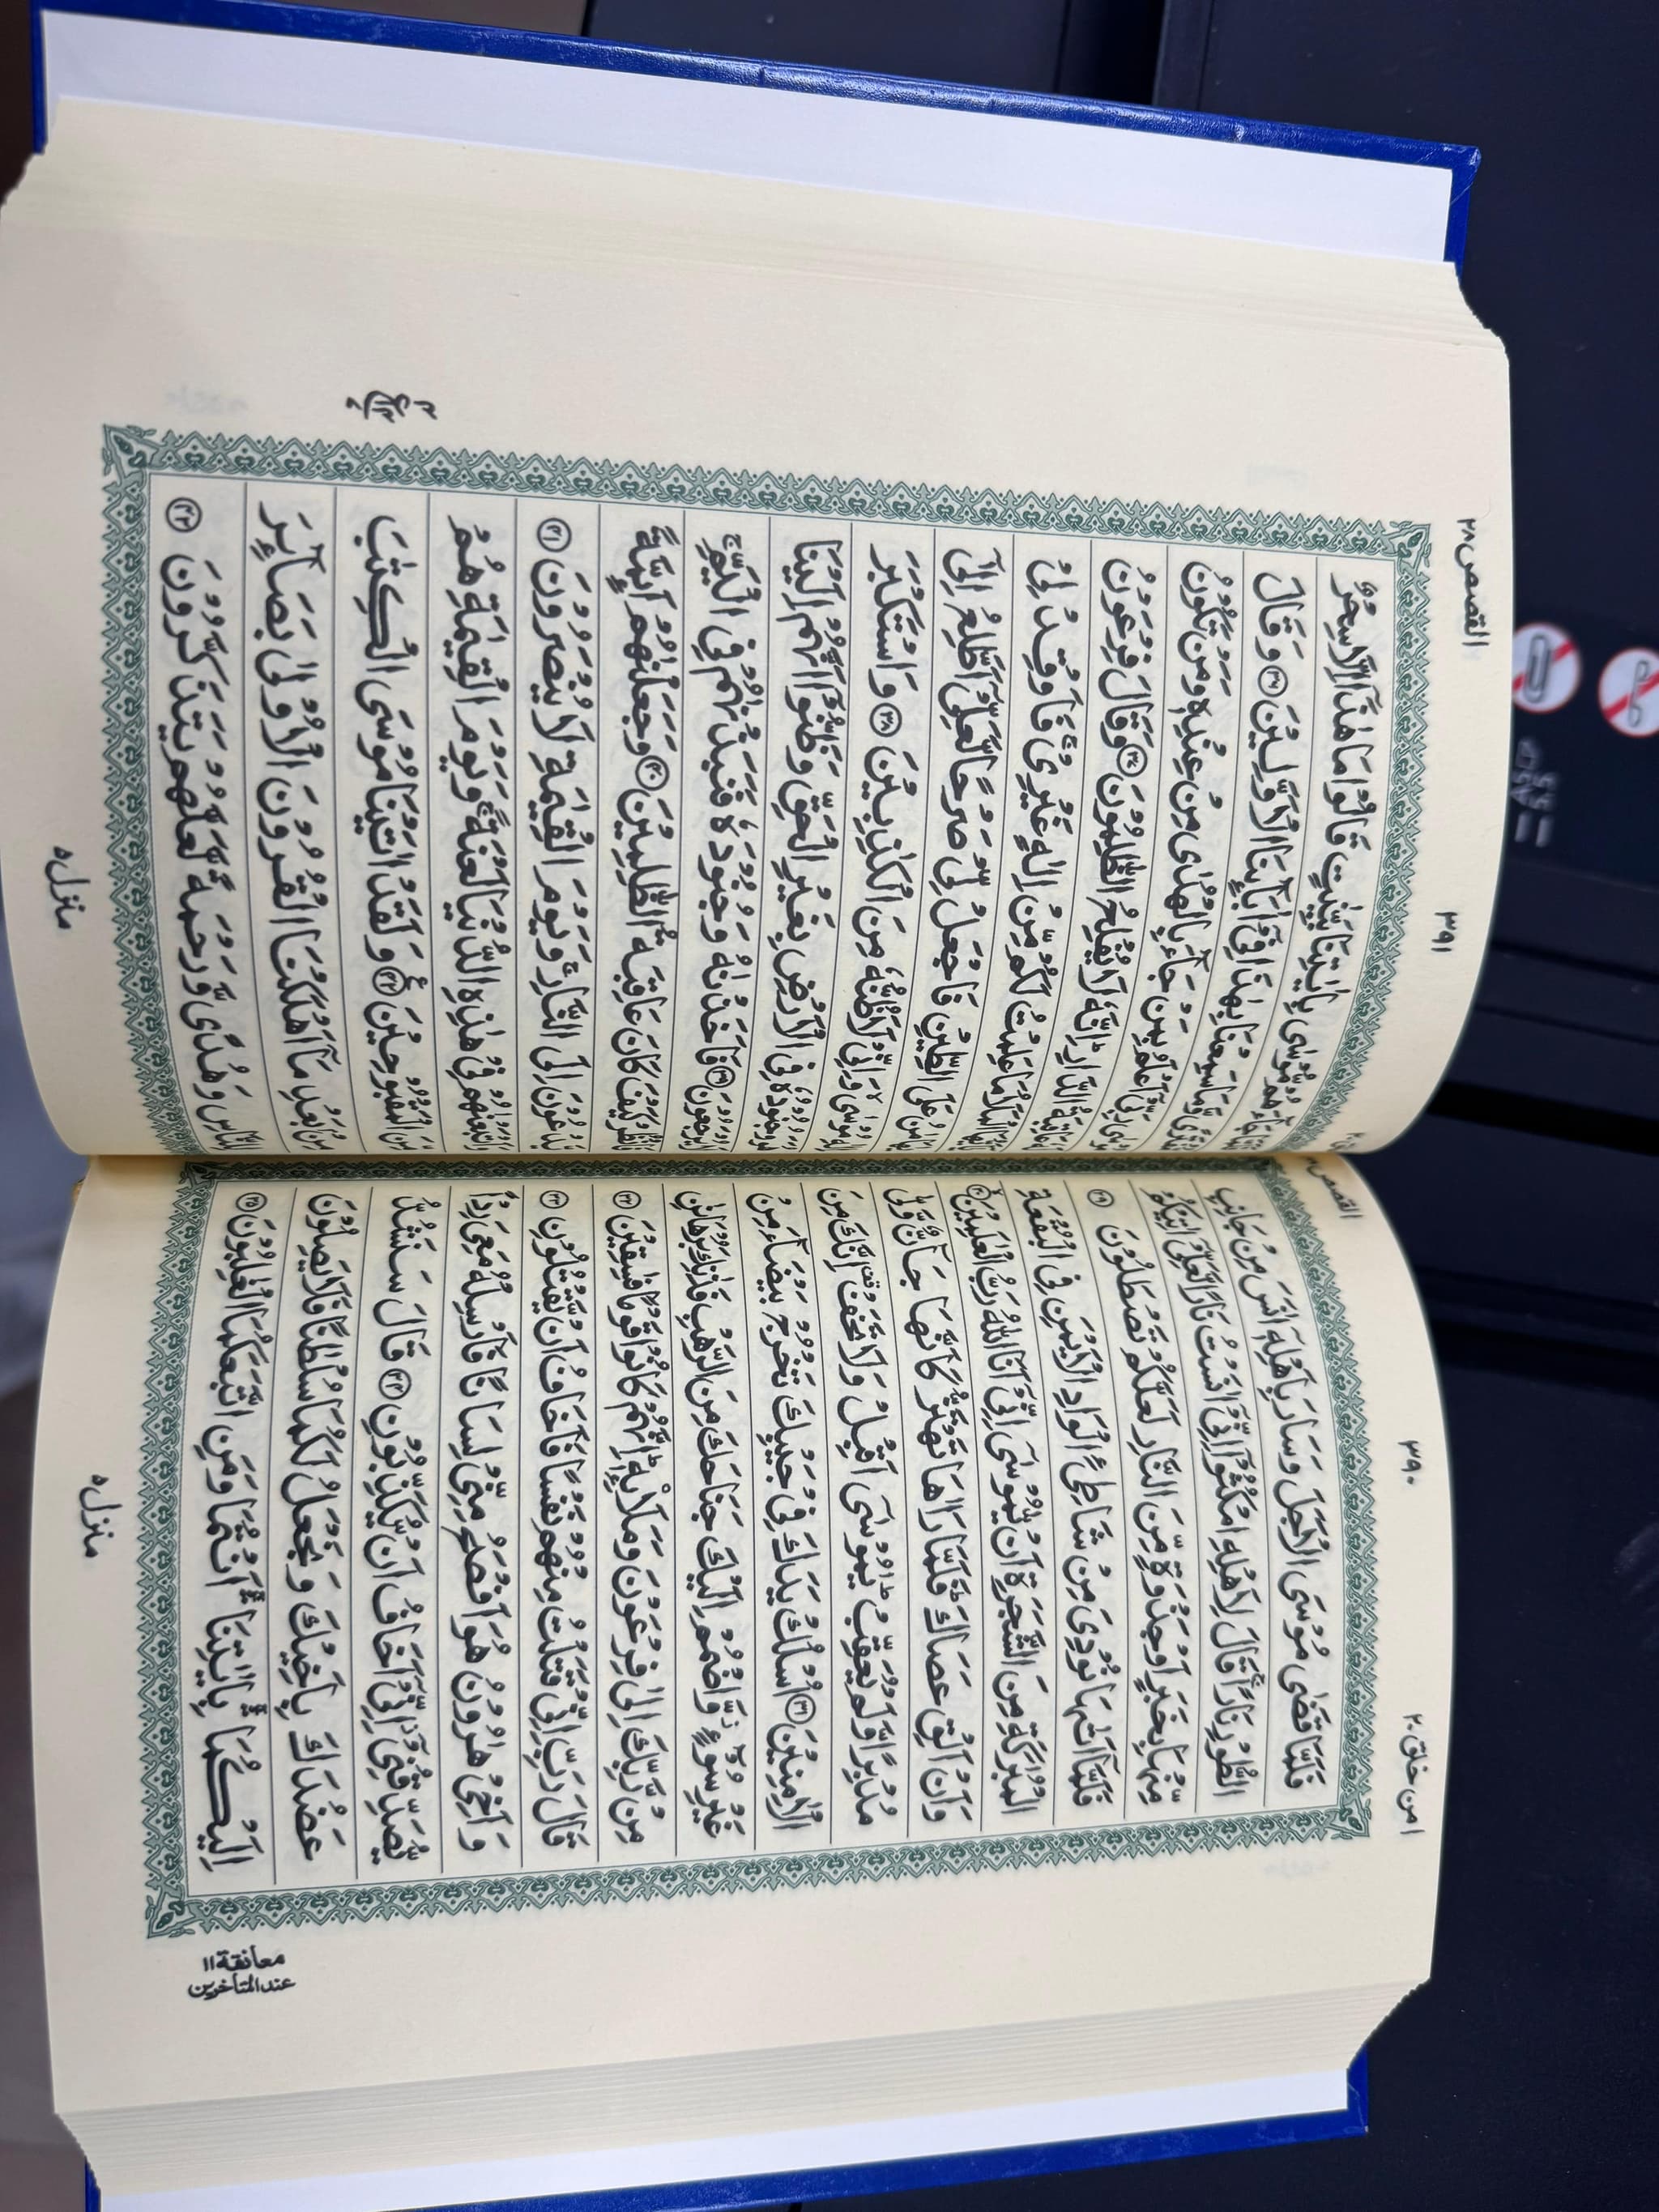 امن خلق ٢٠
٣٩٠
القصص
فَلَمَّا قَضٰى مُوْسَى الْاَجَلَ وَسَارَ بِاَهْلِهٖۤ اٰنَسَ مِنْ جَانِبِ
الطُّوْرِ نَارًا ۚ قَالَ لِاَهْلِهِ امْكُثُوْۤا اِنِّيْۤ اٰنَسْتُ نَارًا لَّعَلِّيْۤ اٰتِيْكُمْ
مِّنْهَا بِخَبَرٍ اَوْ جَذْوَةٍ مِّنَ النَّارِ لَعَلَّكُمْ تَصْطَلُوْنَ ٢٩
فَلَمَّاۤ اَتٰىهَا نُوْدِيَ مِنْ شَاطِئِ الْوَادِ الْاَيْمَنِ فِي الْبُقْعَةِ
الْمُبٰرَكَةِ مِنَ الشَّجَرَةِ اَنْ يّٰمُوْسٰۤى اِنِّيْۤ اَنَا اللّٰهُ رَبُّ الْعٰلَمِيْنَ ٣٠
وَاَنْ اَلْقِ عَصَاكَ ؕ فَلَمَّا رَاٰهَا تَهْتَزُّ كَاَنَّهَا جَآنٌّ وَّلّٰى
مُدْبِرًا وَّلَمْ يُعَقِّبْ ؕ يٰمُوْسٰۤى اَقْبِلْ وَلَا تَخَفْ اِنَّكَ مِنَ
الْاٰمِنِيْنَ ٣١ اُسْلُكْ يَدَكَ فِيْ جَيْبِكَ تَخْرُجْ بَيْضَآءَ مِنْ
غَيْرِ سُوْٓءٍ وَّاضْمُمْ اِلَيْكَ جَنَاحَكَ مِنَ الرَّهْبِ فَذٰنِكَ بُرْهَانٰنِ
مِنْ رَّبِّكَ اِلٰى فِرْعَوْنَ وَمَلَا۟ئِهٖ ؕ اِنَّهُمْ كَانُوْا قَوْمًا فٰسِقِيْنَ ٣٢
قَالَ رَبِّ اِنِّيْ قَتَلْتُ مِنْهُمْ نَفْسًا فَاَخَافُ اَنْ يَّقْتُلُوْنِ ٣٣
وَاَخِيْ هٰرُوْنُ هُوَ اَفْصَحُ مِنِّيْ لِسَانًا فَاَرْسِلْهُ مَعِيَ رِدْاً
يُّصَدِّقُنِيْۤ اِنِّيْۤ اَخَافُ اَنْ يُّكَذِّبُوْنِ ٣٤ قَالَ سَنَشُدُّ
عَضُدَكَ بِاَخِيْكَ وَنَجْعَلُ لَكُمَا سُلْطٰنًا فَلَا يَصِلُوْنَ
اِلَيْكُمَا ۛ بِاٰيٰتِنَا ۛ اَنْتُمَا وَمَنِ اتَّبَعَكُمَا الْغٰلِبُوْنَ ٣٥
معانقة ١١
عند المتأخرين
منزل ٥
٣٩١
القصص ٢٨
فَلَمَّا جَآءَهُمْ مُّوْسٰى بِاٰيٰتِنَا بَيِّنٰتٍ قَالُوْا مَا هٰذَاۤ اِلَّا سِحْرٌ
مُّفْتَرًى وَّمَا سَمِعْنَا بِهٰذَا فِيْۤ اٰبَآئِنَا الْاَوَّلِيْنَ ٣٦ وَقَالَ
مُوْسٰى رَبِّيْۤ اَعْلَمُ بِمَنْ جَآءَ بِالْهُدٰى مِنْ عِنْدِهٖ وَمَنْ تَكُوْنُ
لَهٗ عَاقِبَةُ الدَّارِ ؕ اِنَّهٗ لَا يُفْلِحُ الظّٰلِمُوْنَ ٣٧ وَقَالَ فِرْعَوْنُ
يٰۤاَيُّهَا الْمَلَاُ مَا عَلِمْتُ لَكُمْ مِّنْ اِلٰهٍ غَيْرِيْ ۚ فَاَوْقِدْ لِيْ
يٰهَامٰنُ عَلَى الطِّيْنِ فَاجْعَلْ لِّيْ صَرْحًا لَّعَلِّيْۤ اَطَّلِعُ اِلٰۤى
اِلٰهِ مُوْسٰى ۙ وَاِنِّيْ لَاَظُنُّهٗ مِنَ الْكٰذِبِيْنَ ٣٨ وَاسْتَكْبَرَ
هُوَ وَجُنُوْدُهٗ فِي الْاَرْضِ بِغَيْرِ الْحَقِّ وَظَنُّوْۤا اَنَّهُمْ اِلَيْنَا
لَا يُرْجَعُوْنَ ٣٩ فَاَخَذْنٰهُ وَجُنُوْدَهٗ فَنَبَذْنٰهُمْ فِي الْيَمِّ ۚ
فَانْظُرْ كَيْفَ كَانَ عَاقِبَةُ الظّٰلِمِيْنَ ٤٠ وَجَعَلْنٰهُمْ اَئِمَّةً
يَّدْعُوْنَ اِلَى النَّارِ ۚ وَيَوْمَ الْقِيٰمَةِ لَا يُنْصَرُوْنَ ٤١
وَاَتْبَعْنٰهُمْ فِيْ هٰذِهِ الدُّنْيَا لَعْنَةً ۚ وَيَوْمَ الْقِيٰمَةِ هُمْ
مِّنَ الْمَقْبُوْحِيْنَ ٤٢ وَلَقَدْ اٰتَيْنَا مُوْسَى الْكِتٰبَ
مِنْۢ بَعْدِ مَاۤ اَهْلَكْنَا الْقُرُوْنَ الْاُوْلٰى بَصَآئِرَ
لِلنَّاسِ وَهُدًى وَّرَحْمَةً لَّعَلَّهُمْ يَتَذَكَّرُوْنَ ٤٣
منزل ٥